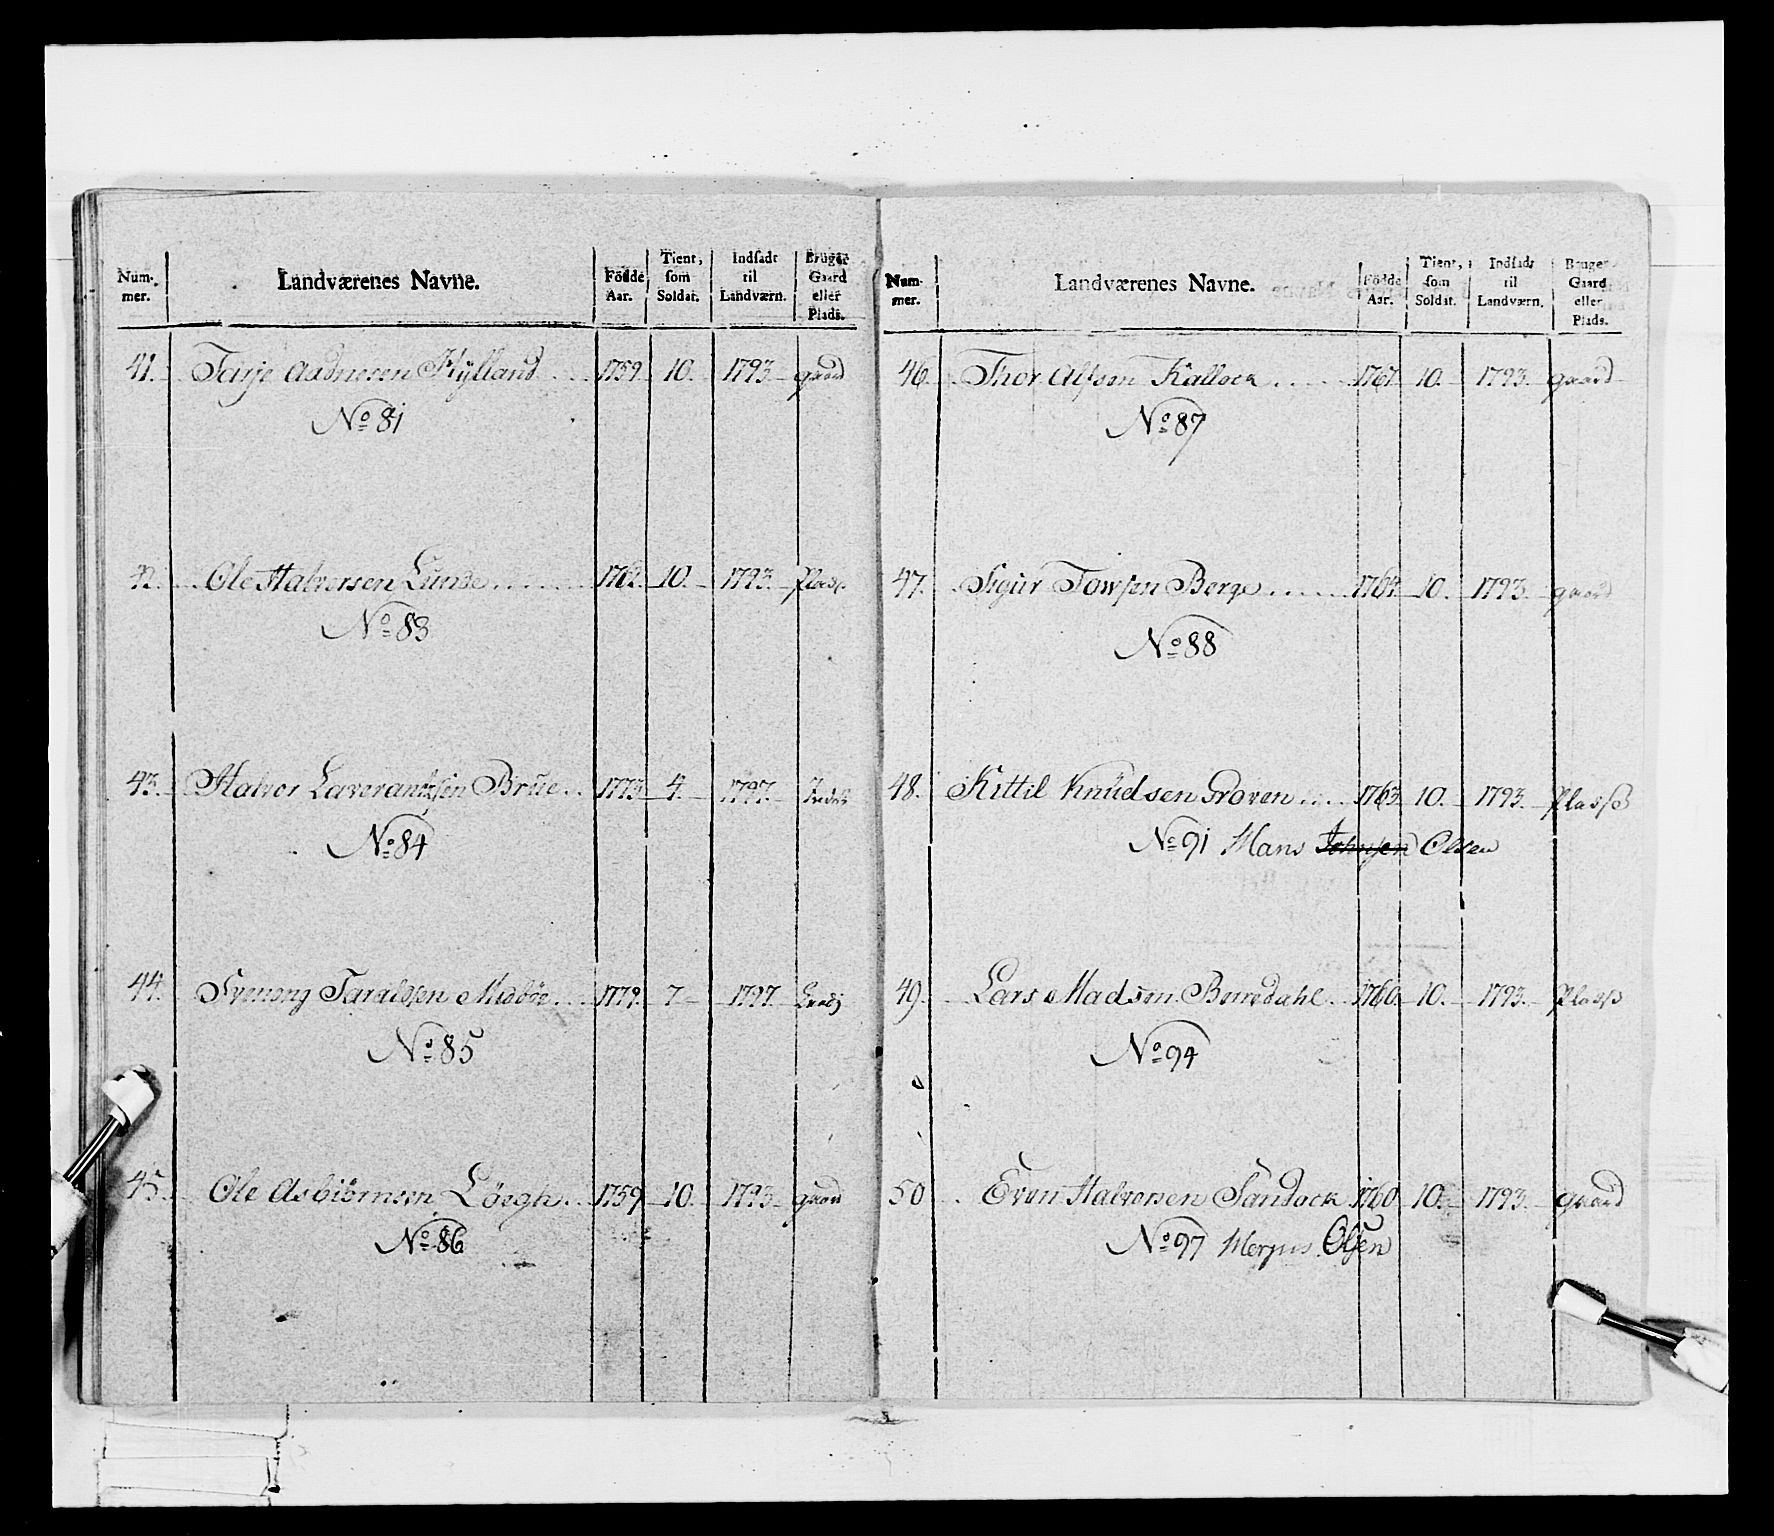 Num-mer. Landværenes Navne. Födde Aar. Tient, som Soldat. Indsadt til Landværn. Bruger Gaard eller Plads.
41. Tarje Aadnesen Kylland 1759 10. 1793 gaard
No 81
42. Ole Halvorsen Lunde 1762. 10. 1793. Plads
No 83
43. Halvor Laverantzsen Brue 1773 4. 1797.
No 84
44. Svenong Taraldsen Midböe 1779. 7 1797.
No 85
45. Ole Asbiörnsen Löegh 1759 10. 1793 gaard
No 86
Num-mer. Landværenes Navne. Födde Aar. Tient, som Soldat. Indsadt til Landværn. Bruger Gaard eller Plads.
46. Thor Alfsen Kallock 1767 10. 1793. gaard
No 87
47. Sigur Towsen Berge 10. 1793. gaard
No 88
48. Kittil Knudsen Groven 1763 10. 1793. Plads
No 91 Hans Johnsen Olsen
49. Lars Madsen Borredahl 1760. 10. 1793. Plads
No 94
50 Even Halvorsen Sandock 1760 10. 1793. gaard
No 97 Olsen